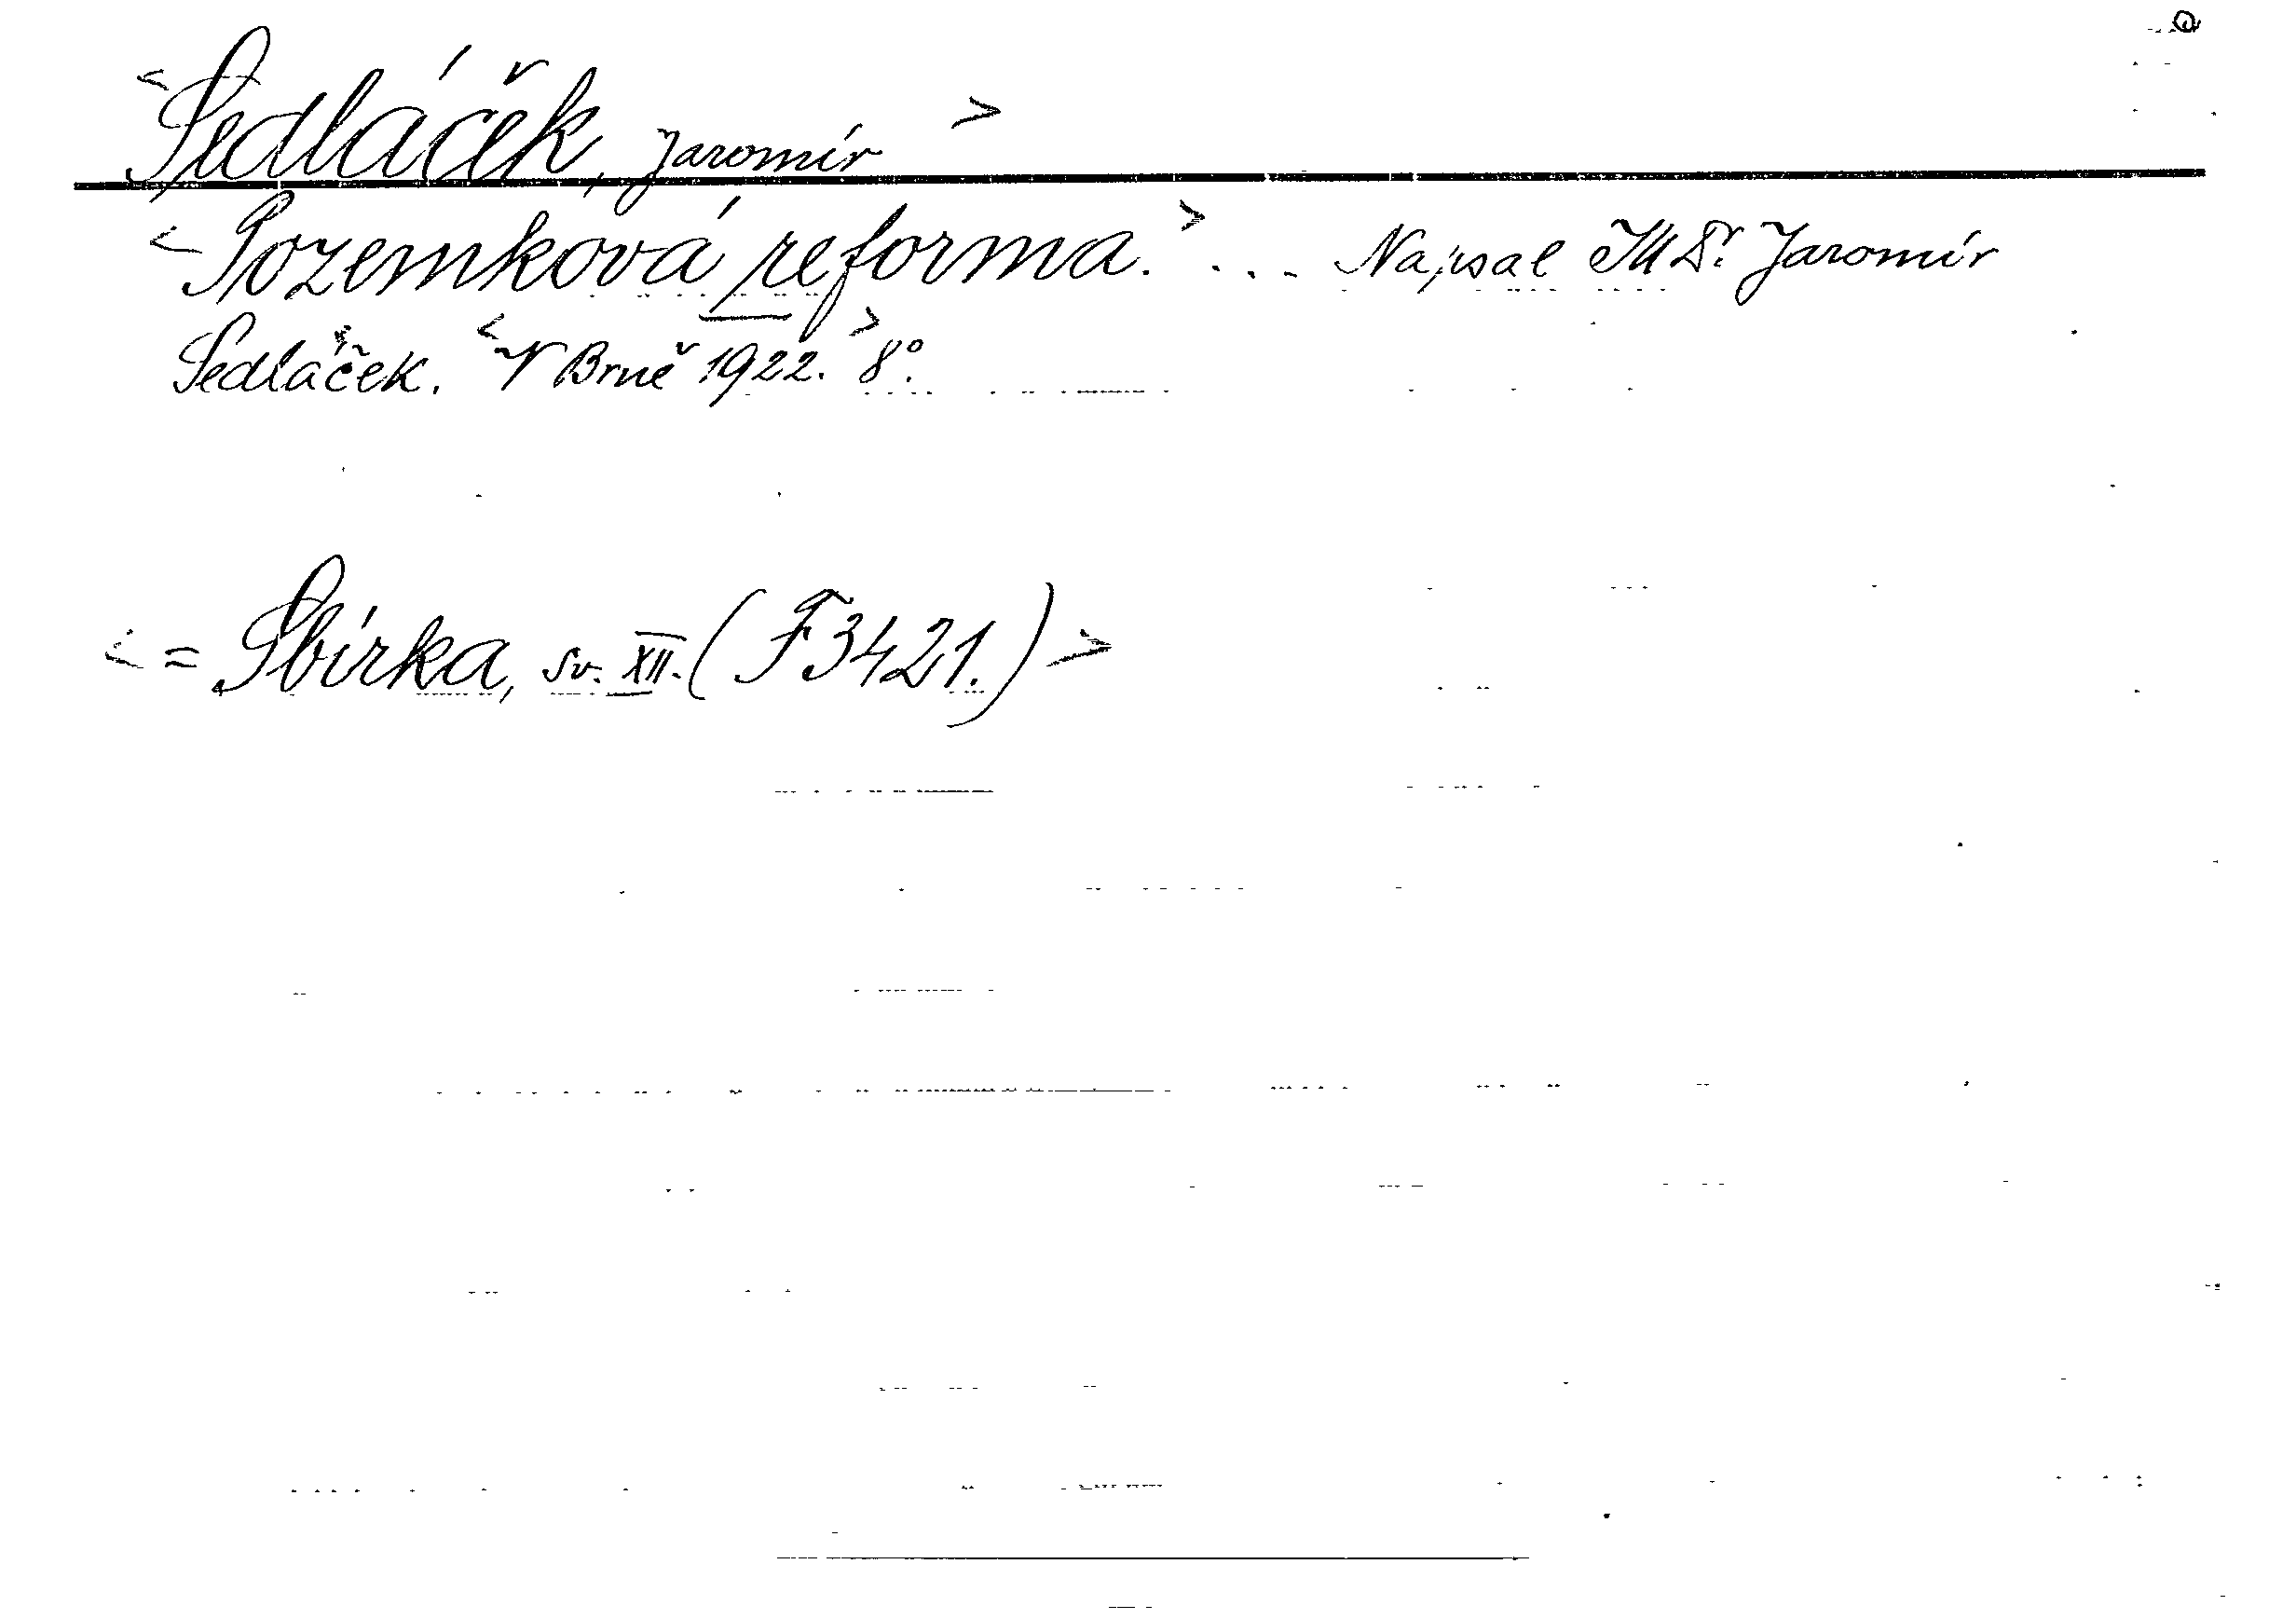 <Sedláček, Jaromír>
<Pozemková reforma.> ... Napsal JUDr. Jaromír
Sedláček. <V Brně 1922.> 8°.
<= Sbírka, sv. XII. (F3421.)>